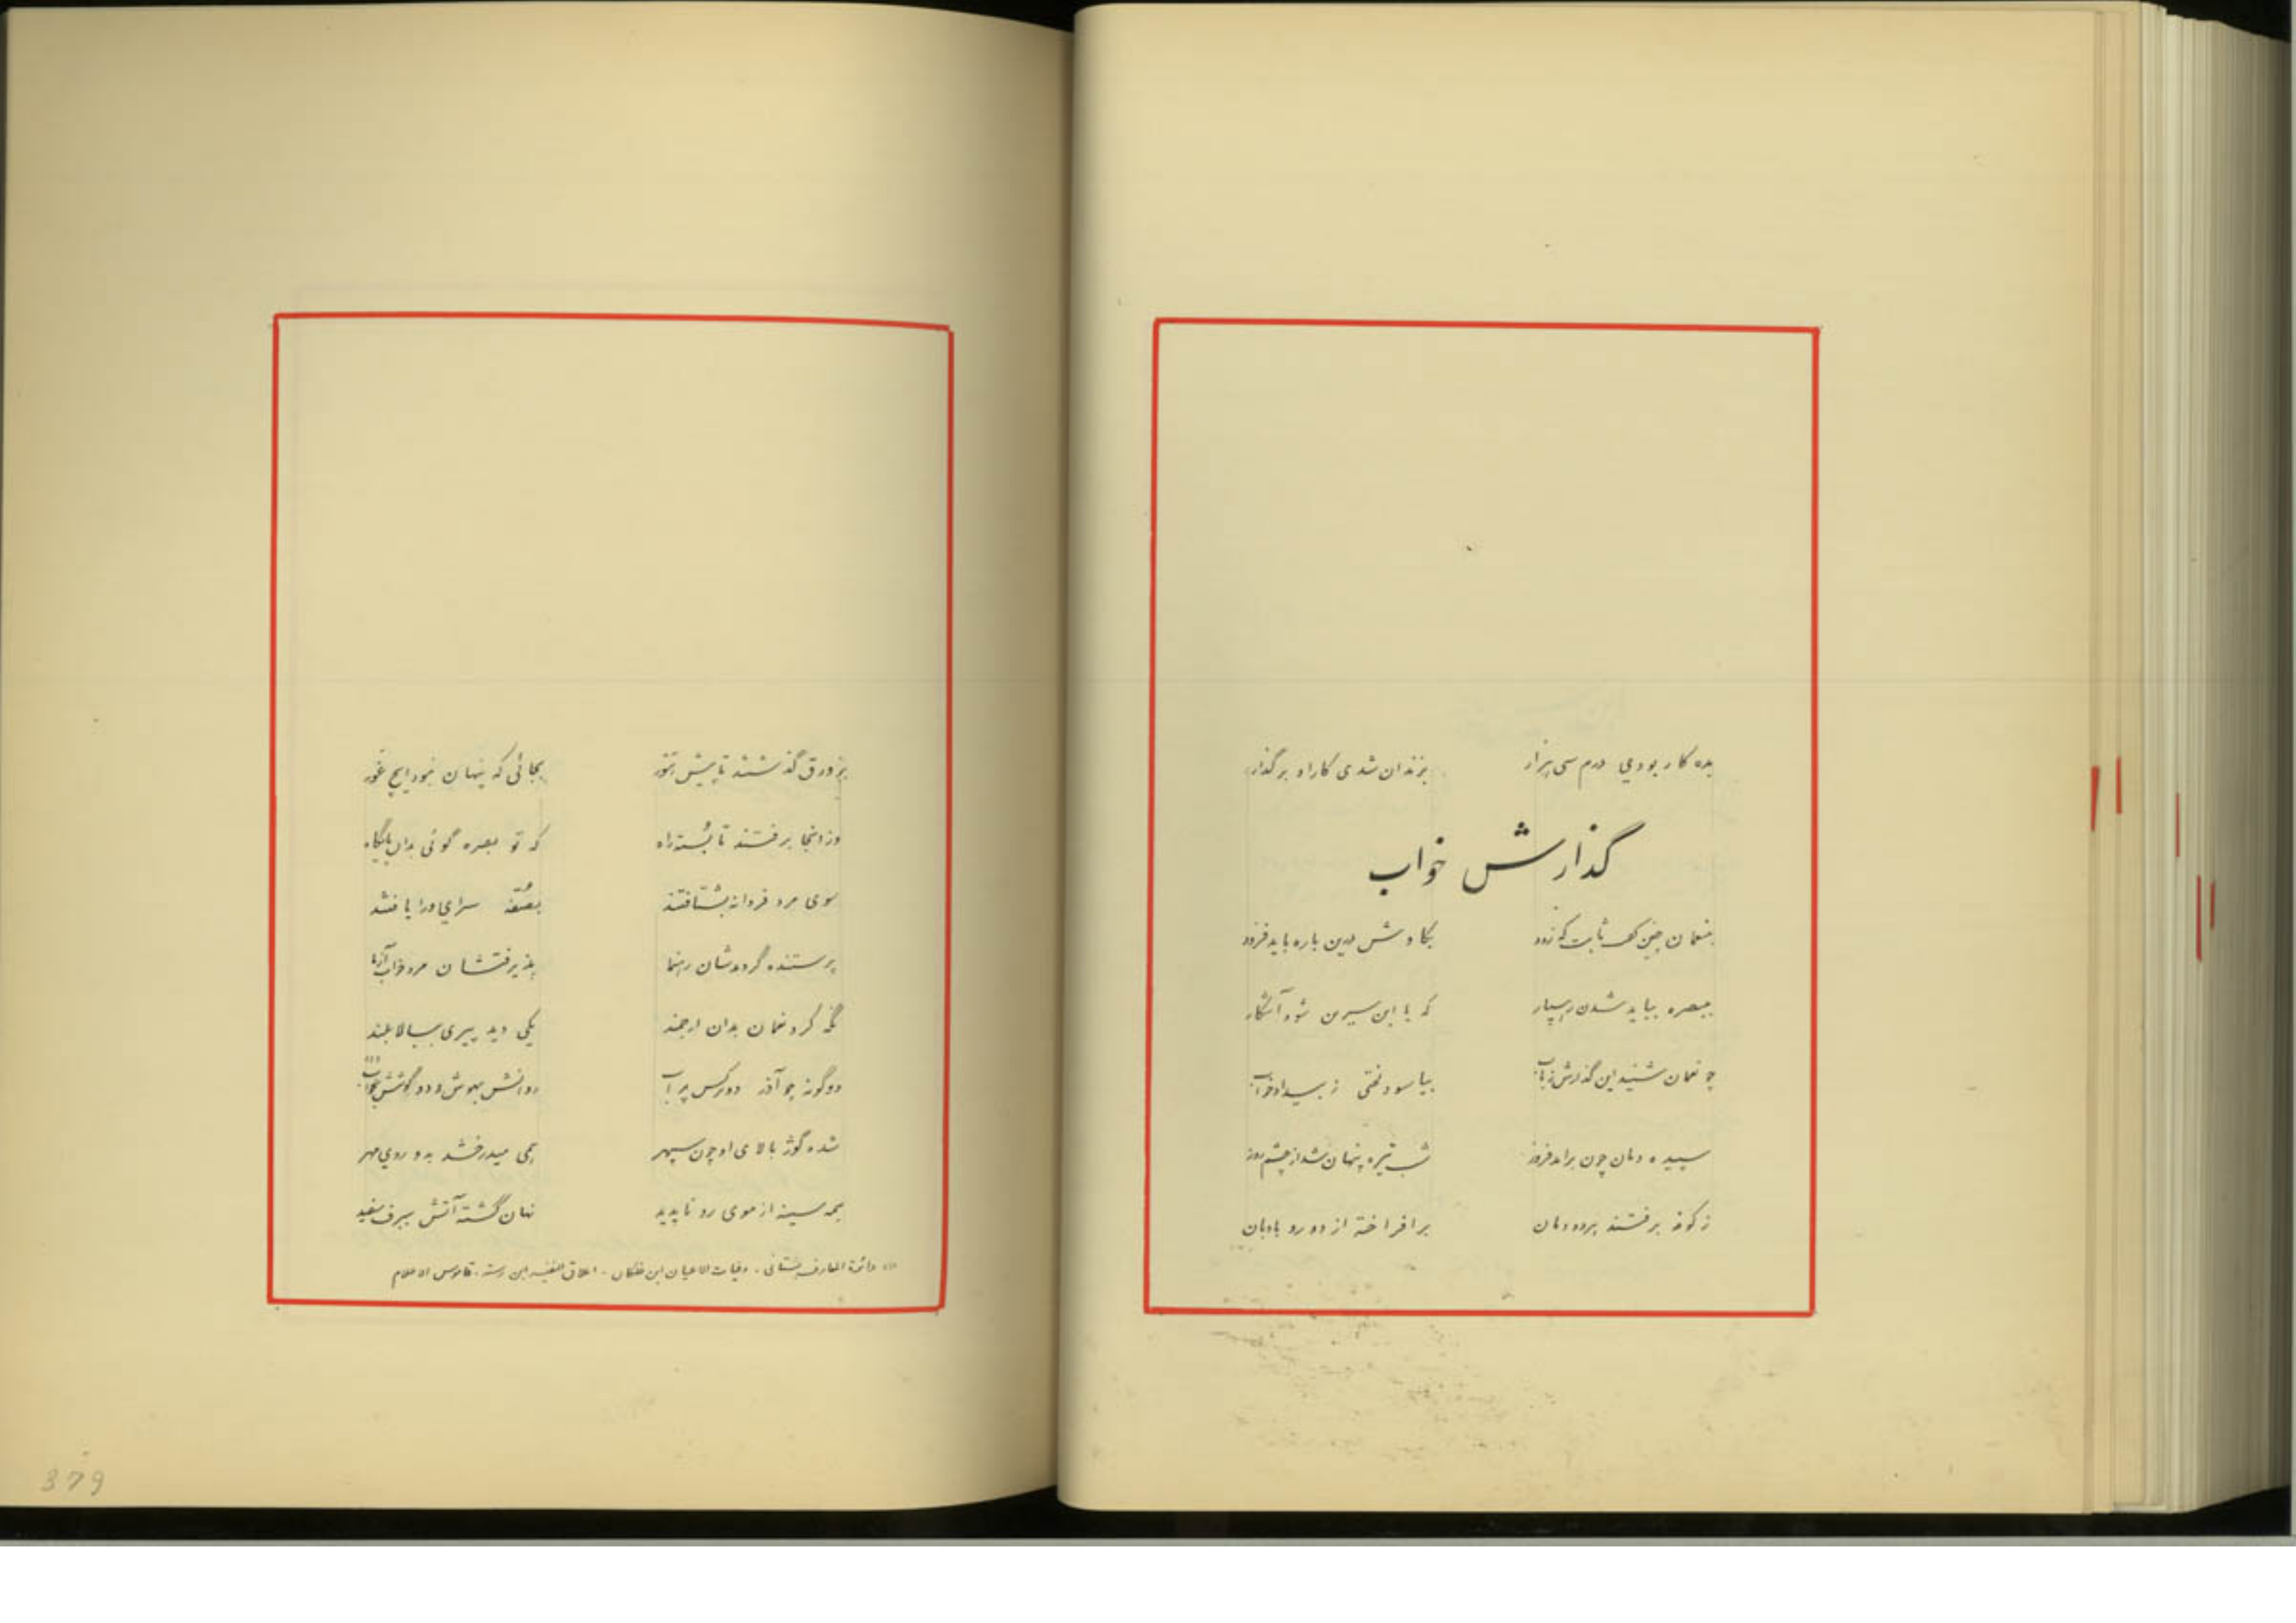 بده کار بودی درم سی هزار    بزندان شدی کار او برگذار
گذارش خواب
بنعمان چنین گفت ثابت که زود    بکاوش درین باره باید فزود
ببصره بباید شدن رهسپار    که با ابن سیرین شود آشکار
چو نعمان شنید این گذارش ز باب    بیاسود لختی ز بیداد خواب
سپیده دمان چون برامد فروز    شب تیره پنهان شد از چشم روز
ز کوفه برفتند هر دو دمان    برافراخته از دو رو بادبان
بزورق گذشتند تا پیش    بجائی که پنهان نبود ایچ غور
وزانجا برفتند تا بُسته راه    که تو بصره گوئی بدان پایگاه
سوی مرد فرزانه بشتافتند    بصُفّه سرای ورا یافتند
پرستنده گردیدشان رهنما    پذیرفتشان مرد خواب آزما
نگه کرد نعمان بدان ارجمند    یکی دید پیری ببالا بلند
دو گونه چو آذر دو نرگس پر آب    روانش بهوش و دو گوشش بخواب (۱)
شده گوژ بالای او چون سپهر    همی میدرخشد بدو روی مهر
همه سینه از موی رو ناپدید    نهان گشته آتش ببرف سفید
(۱) دائرة المعارف بستانی . وفیات الاعیان ابن خلکان . اعلاق النفیسه ابن رسته . قاموس الاعلام
379